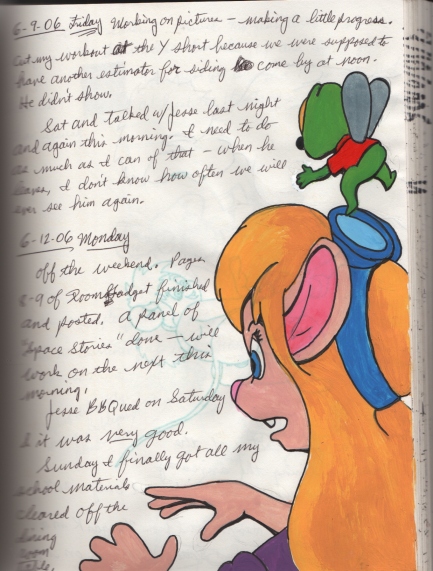 6-9-06 Friday Working on pictures – making a little progress.
Cut my workout at the Y short because we were supposed to
have another estimator for siding come by at noon.
He didn't show.
Sat and talked w/Jesse last night
and again this morning. I need to do
as much as I can of that – when he
leaves, I don't know how often we will
ever see him again.
6-12-06 Monday
Off the weekend. Pages
8-9 of Room Gadget finished
and posted. A panel of
"Space Stories" done – will
work on the next this
morning.
Jesse BBQued on Saturday
& it was very good.
Sunday I finally got all my
school materials
cleared off the
dining
room
table.